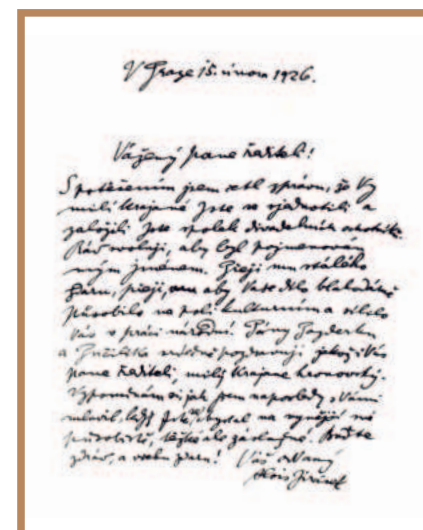 V Praze 15. února 1926.
Vážený pane řediteli!
S potěšením jsem četl zprávu, že Vy
milí krajané jste se sjednotili a
založili jste spolek divadelních ochotníků.
Rád svoluji, aby byl pojmenován
mým jménem. Přeji mu stálého
zdaru, přeji, aby Vaše dílo blahodárně
působilo na poli kulturním a sílilo
Vás v práci národní. Pány
a srdečně pozdravuji jakož i Vás
pane řediteli, milý krajane hronovský.
Vzpomínám si jak jsem naposledy s Vámi
mluvil, když jste odjížděl na nynější své
působiště, těžké ale záslužné. Buďte
zdráv, a mnoho zdaru! Váš oddaný
Alois Jirásek